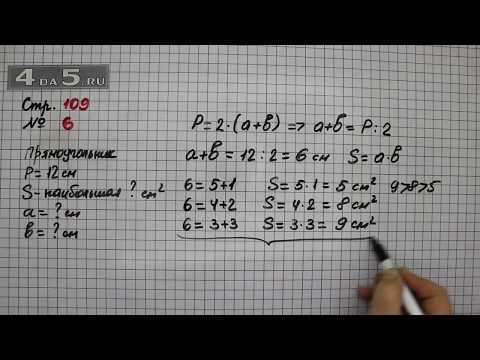 4 DA 5 RU
Стр. 109
№ 6
Прямоугольник
P = 12 см
S - наибольшая ? см²
a = ? см
b = ? см
P = 2 · (a+b) => a+b = P : 2
a+b = 12 : 2 = 6 см S = a·b
6 = 5+1 S = 5·1 = 5 см² 9>8>5
6 = 4+2 S = 4·2 = 8 см²
6 = 3+3 S = 3·3 = 9 см²